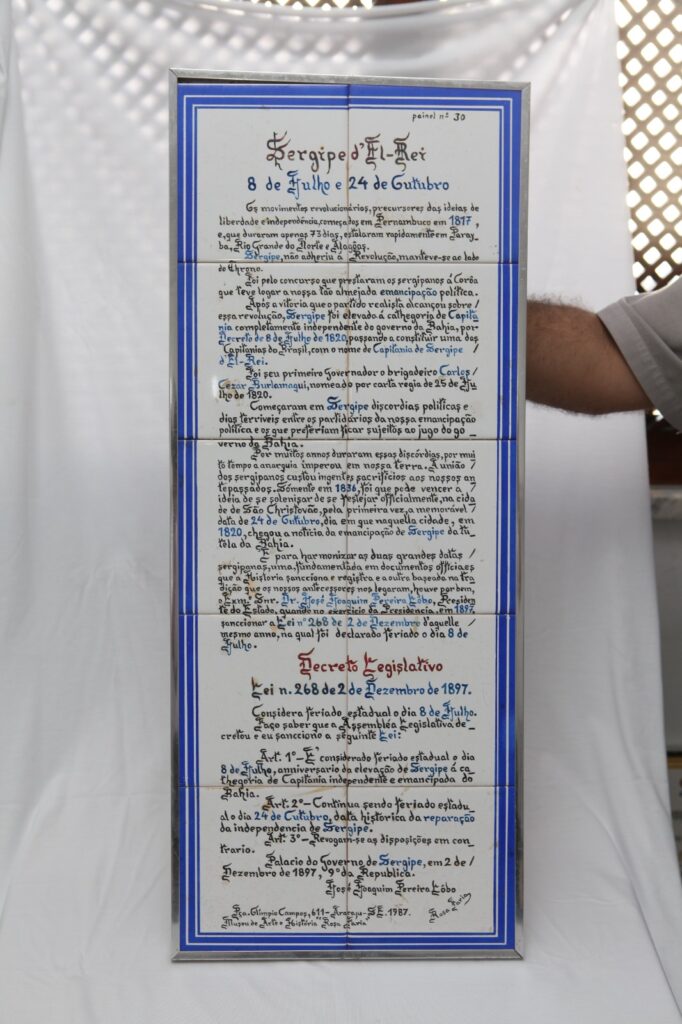 painel nº 30
Sergipe d'El-Rei
8 de Julho e 24 de Outubro
Os movimentos revolucionários, precursores das ideias de
liberdade e independência, começados em Pernambuco em 1817,
e, que duraram apenas 73 dias, estalaram rapidamente em Paray-
ba, Rio Grande do Norte e Alagôas.
Sergipe, não adheriu á Revolução, manteve-se ao lado
do Throno.
Foi pelo concurso que prestaram os sergipanos á Corôa
que teve logar a nossa tão almejada emancipação política.
Após a vitória que o partido realista alcançou sobre/
essa revolução, Sergipe foi elevada á cathegoria de Capita/
nia completamente independente do governo da Bahia, por
Decreto de 8 de Julho de 1820, passando a constituir uma das
Capitanias do Brasil, com o nome de Capitania de Sergipe/
d'El-Rei.
Foi seu primeiro Governador o brigadeiro Carlos/
Cezar Burlamaqui, nomeado por carta regia de 25 de Ju
lho de 1820.
Começaram em Sergipe discordias políticas e
dias terríveis entre os partidários da nossa emancipação
política e os que preferiam ficar sujeitos ao jugo do go_
verno da Bahia.
Por muitos anos duraram essas discórdias, por mui
to tempo a anarquia imperou em nossa terra. A união/
dos sergipanos custou ingentes sacrifícios aos nossos an
tepassados. Sómente em 1836, foi que pode vencer a/
ideia de se solenisar de se festejar officialmente, na cida
de de São Christovão, pela primeira vez, a memorável/
data de 24 de Outubro, dia em que naquella cidade, em
1820, chegou a notícia da emancipação de Sergipe da tu
tela da Bahia.
E para harmonizar as duas grandes datas/
sergipanas, uma, fundamentada em documentos officiaes
que a Historia sancciona e registra e a outra baseada na tra
dição que os nossos antecessores nos legaram, houve por bem,
o Exmº. Snr. Dr. José Joaquim Pereira Lôbo, Preside
te do Estado, quando no exercício da Presidencia, em 1897
sanccionar a Lei nº 268 de 2 de Dezembro d'aquelle/
mesmo anno, na qual foi declarado feriado o dia 8 de
Julho.
Decreto Legislativo
Lei n. 268 de 2 de Dezembro de 1897.
Considera feriado estadual o dia 8 de Julho.
Faço saber que a Assembléa Legislativa de_
cretou e eu sancciono a seguinte Lei:
Art. 1º- E' considerado feriado estadual o dia
8 de Julho, anniversario da elevação de Sergipe á ca_
thegoria de Capitania independente e emancipada da
Bahia.
Art: 2º- Continua sendo feriado estadu_
al o dia 24 de Outubro, data histórica da reparação
da independencia de Sergipe.
Art: 3º- Revogam-se as disposições em con_
trario.
Palacio do Governo de Sergipe, em 2 de/
Dezembro de 1897, 9º da Republica.
José Joaquim Pereira Lôbo
Pça. Olimpio Campos, 611- Aracaju- SE. 1987.
Museu de Arte e História "Rosa Faria"
Rosa Faria